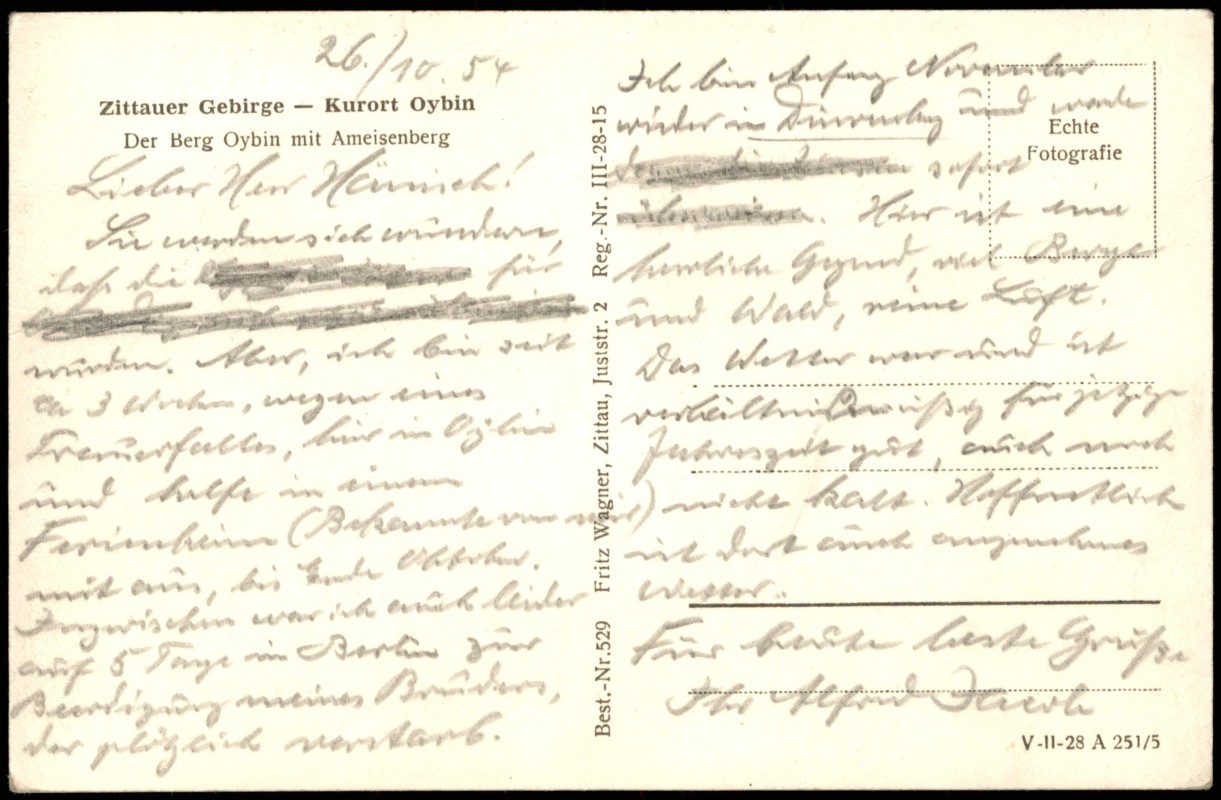 26./10. 54
Zittauer Gebirge — Kurort Oybin
Der Berg Oybin mit Ameisenberg
Lieber Herr Hänisch!
Sie werden sich wundern,
daß die für
wurden. Aber, ich bin seit
ca 3 Wochen, wegen eines
Trauerfalles, hier in Oybin
und helfe in einem
Ferienheim (Bekannte von mir)
mit aus, bis Ende Oktober.
Inzwischen war ich auch leider
auf 5 Tage in Berlin zur
Beerdigung meines Bruders,
der plötzlich verstarb.
Best.-Nr.529 Fritz Wagner, Zittau, Juststr. 2 Reg.-Nr. III-28-15
Ich bin Anfang November
wieder in und werde
sofort
Hier ist eine
herrliche Gegend, viel Berge
und Wald, reine Luft.
Das Wetter war und ist
verhältnismäßig für jetzige
Jahreszeit gut, auch noch
nicht kalt. Hoffentlich
ist dort auch angenehmes
Wetter.
Für heute beste Grüße
Ihr Alfred Jacob
Echte
Fotografie
V-II-28 A 251/5